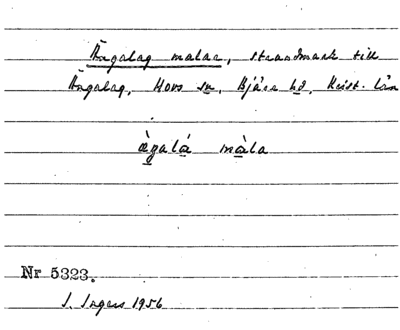 Ängalag malar, strandmark till
Ängalag, Hovs sn, Bjäre hd, Krist. län
ægalá màla
Nr 5323.
I. Ingers 1956